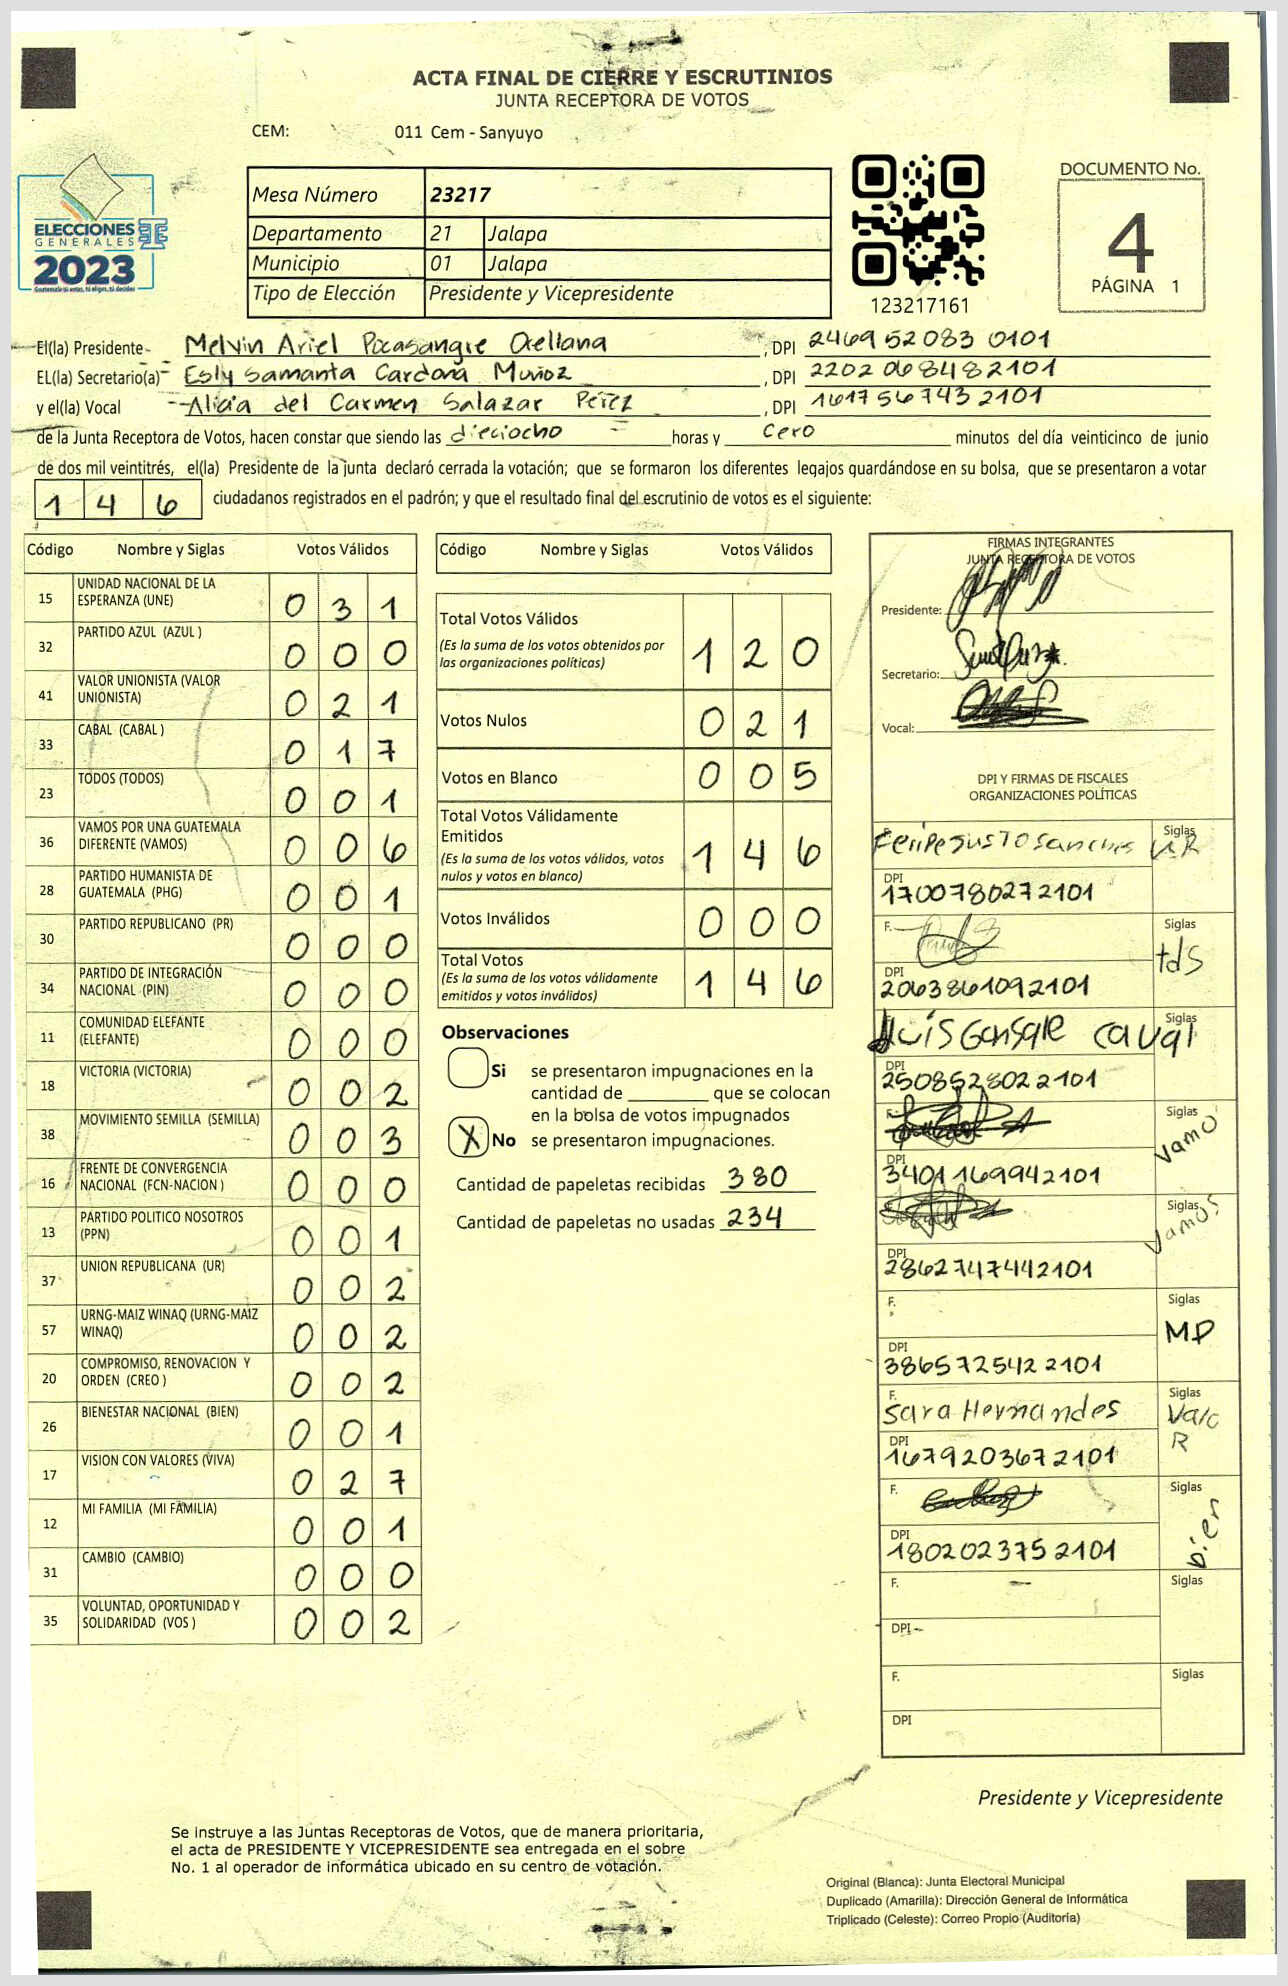 ACTA FINAL DE CIERRE Y ESCRUTINIOS
JUNTA RECEPTORA DE VOTOS
CEM: 011 Cem - Sanyuyo
ELECCIONES
GENERALES
2023
Guatemala: tú votas, tú eliges, tú decides
Mesa Número 23217
Departamento 21 Jalapa
Municipio 01 Jalapa
Tipo de Elección Presidente y Vicepresidente
123217161
DOCUMENTO No.
4
PÁGINA 1
El(la) Presidente Melvin Ariel Pocasangre Orellana , DPI 2469 52083 0101
EL(la) Secretario(a) Esly Samanta Cardona Muñoz , DPI 2202 06848 2101
y el(la) Vocal Alicia del Carmen Salazar Pérez , DPI 1617 56743 2101
de la Junta Receptora de Votos, hacen constar que siendo las dieciocho horas y cero minutos del día veinticinco de junio
de dos mil veintitrés, el(la) Presidente de la junta declaró cerrada la votación; que se formaron los diferentes legajos guardándose en su bolsa, que se presentaron a votar
1 4 6 ciudadanos registrados en el padrón; y que el resultado final del escrutinio de votos es el siguiente:
Código Nombre y Siglas Votos Válidos
15 UNIDAD NACIONAL DE LA ESPERANZA (UNE) 0 3 1
32 PARTIDO AZUL (AZUL ) 0 0 0
41 VALOR UNIONISTA (VALOR UNIONISTA) 0 2 1
33 CABAL (CABAL ) 0 1 7
23 TODOS (TODOS) 0 0 1
36 VAMOS POR UNA GUATEMALA DIFERENTE (VAMOS) 0 0 6
28 PARTIDO HUMANISTA DE GUATEMALA (PHG) 0 0 1
30 PARTIDO REPUBLICANO (PR) 0 0 0
34 PARTIDO DE INTEGRACIÓN NACIONAL (PIN) 0 0 0
11 COMUNIDAD ELEFANTE (ELEFANTE) 0 0 0
18 VICTORIA (VICTORIA) 0 0 2
38 MOVIMIENTO SEMILLA (SEMILLA) 0 0 3
16 FRENTE DE CONVERGENCIA NACIONAL (FCN-NACION ) 0 0 0
13 PARTIDO POLITICO NOSOTROS (PPN) 0 0 1
37 UNION REPUBLICANA (UR) 0 0 2
57 URNG-MAIZ WINAQ (URNG-MAIZ WINAQ) 0 0 2
20 COMPROMISO, RENOVACION Y ORDEN (CREO ) 0 0 2
26 BIENESTAR NACIONAL (BIEN) 0 0 1
17 VISION CON VALORES (VIVA) 0 2 7
12 MI FAMILIA (MI FAMILIA) 0 0 1
31 CAMBIO (CAMBIO) 0 0 0
35 VOLUNTAD, OPORTUNIDAD Y SOLIDARIDAD (VOS ) 0 0 2
Código Nombre y Siglas Votos Válidos
Total Votos Válidos 1 2 0
(Es la suma de los votos obtenidos por
las organizaciones políticas)
Votos Nulos 0 2 1
Votos en Blanco 0 0 5
Total Votos Válidamente
Emitidos 1 4 6
(Es la suma de los votos válidos, votos
nulos y votos en blanco)
Votos Inválidos 0 0 0
Total Votos 1 4 6
(Es la suma de los votos válidamente
emitidos y votos inválidos)
Observaciones
Si se presentaron impugnaciones en la
cantidad de ________ que se colocan
en la bolsa de votos impugnados
X No se presentaron impugnaciones.
Cantidad de papeletas recibidas 380
Cantidad de papeletas no usadas 234
FIRMAS INTEGRANTES
JUNTA RECEPTORA DE VOTOS
Presidente:
Secretario:
Vocal:
DPI Y FIRMAS DE FISCALES
ORGANIZACIONES POLÍTICAS
Felipe Justo Sanches Siglas UR
DPI 1700780272101
F. Siglas tdS
DPI 2063861092101
Luis Gonsale Siglas Caval
DPI 2508528022101
F. Siglas Vamo
DPI 3401169942101
Siglas Vamos
DPI 2862747442101
F. Siglas MP
DPI 3865725422101
F. Sara Hernandes Siglas Valo
R
DPI 1679203672101
F. Siglas bien
DPI 1802023752101
F. Siglas
DPI
F. Siglas
DPI
Presidente y Vicepresidente
Se instruye a las Juntas Receptoras de Votos, que de manera prioritaria,
el acta de PRESIDENTE Y VICEPRESIDENTE sea entregada en el sobre
No. 1 al operador de informática ubicado en su centro de votación.
Original (Blanca): Junta Electoral Municipal
Duplicado (Amarilla): Dirección General de Informática
Triplicado (Celeste): Correo Propio (Auditoría)